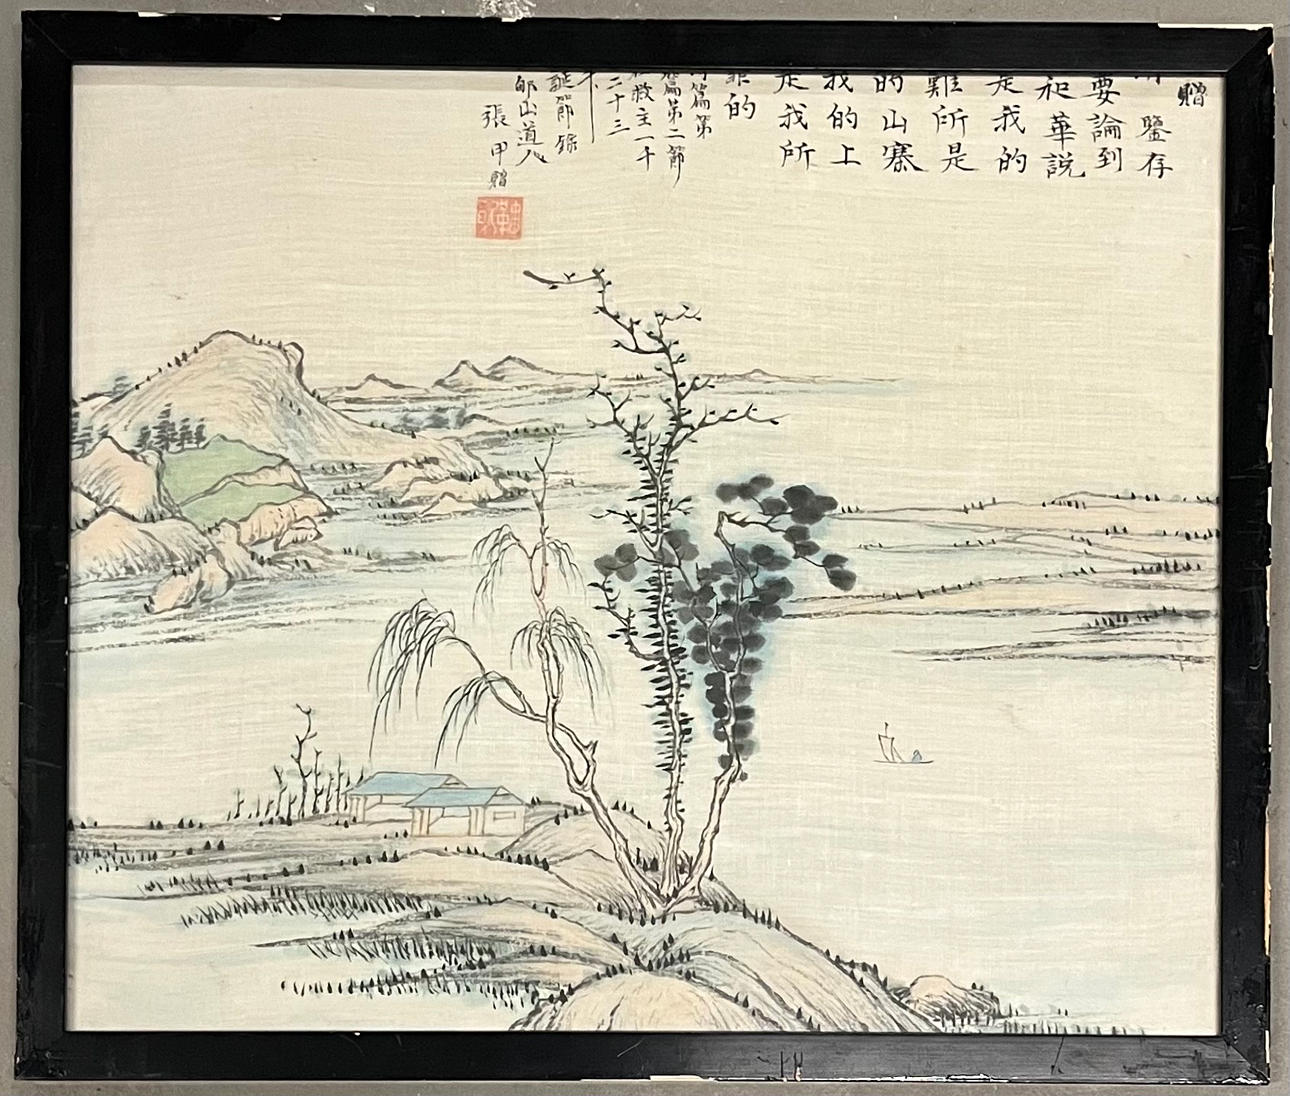 贈
鑒存
要論到
和華説
是我的
難所是
的山寨
我的上
是我所
靠的
篇第
篇第二節
救主一千
二十三
誕節録
邙山道人
張甲贈